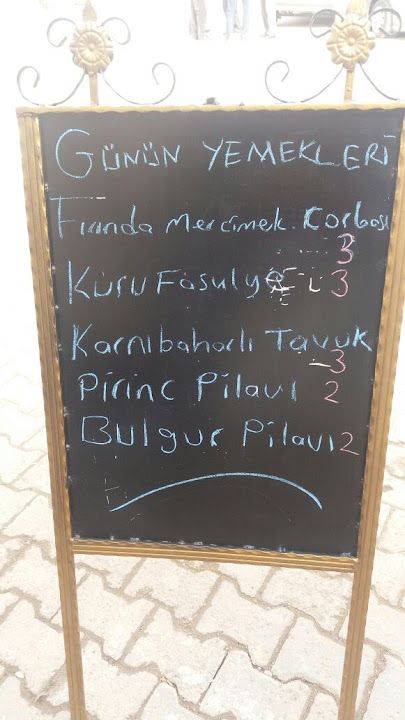 GÜNÜN YEMEKLERİ
Fırında Mercimek Çorbası
3
Kuru Fasulye 3
Karnıbaharlı Tavuk
3
Pirinc Pilavı 2
Bulgur Pilavı 2